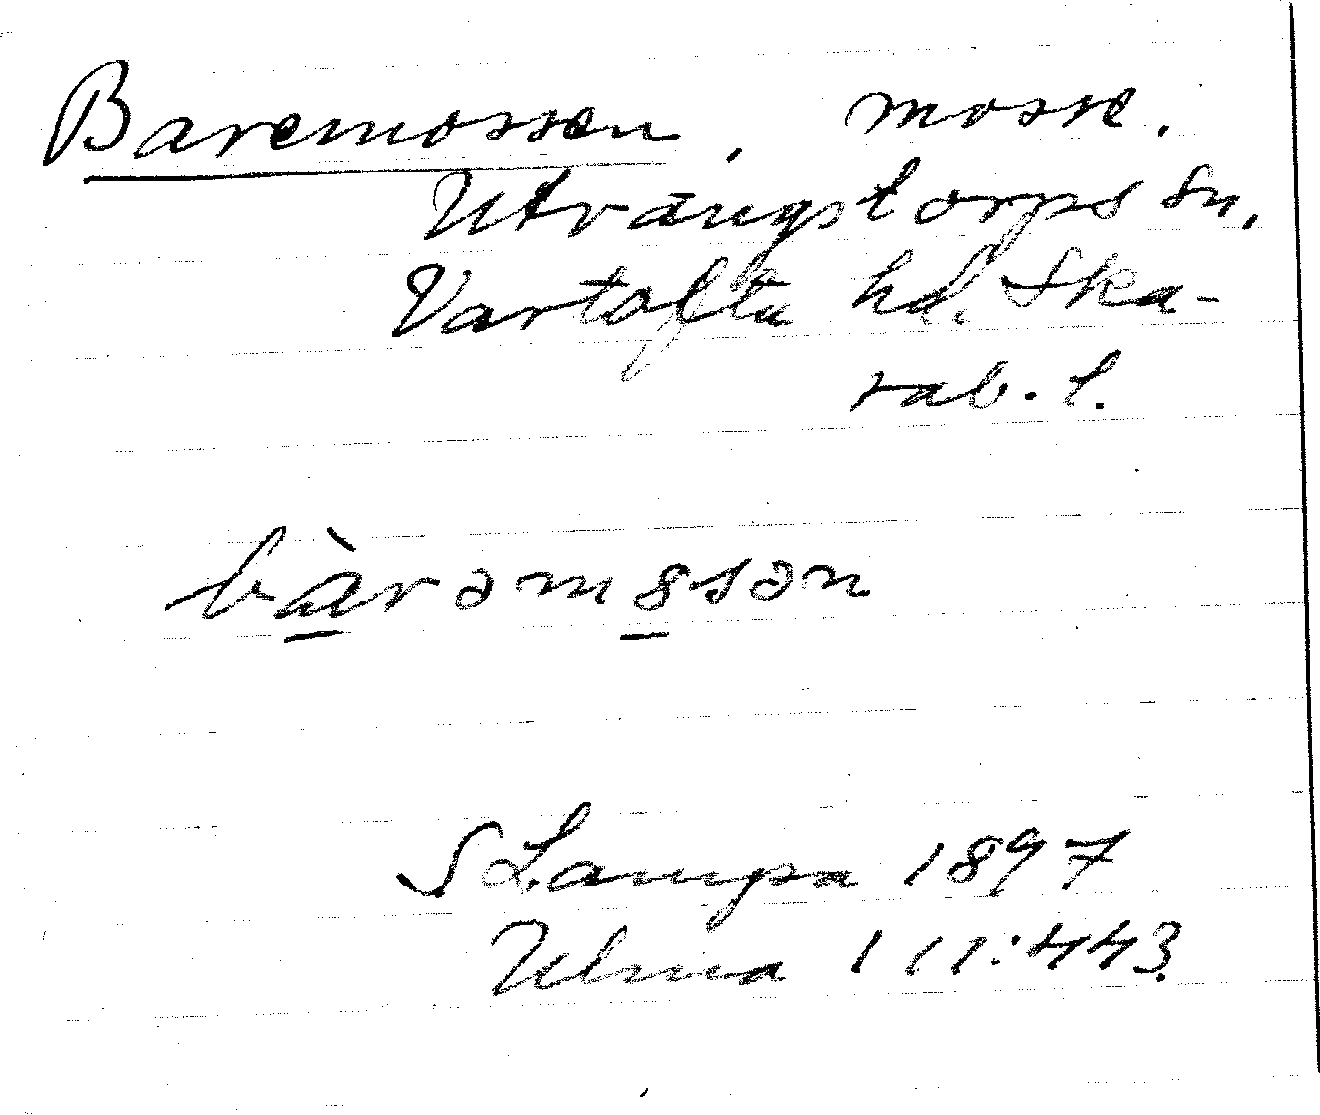 Baremossen, mosse.
Utvängstorps sn,
Vartofta hd. Ska-
rab. l.
bàrəmȣsən
S Lampa 1897
Ulma 111:443.